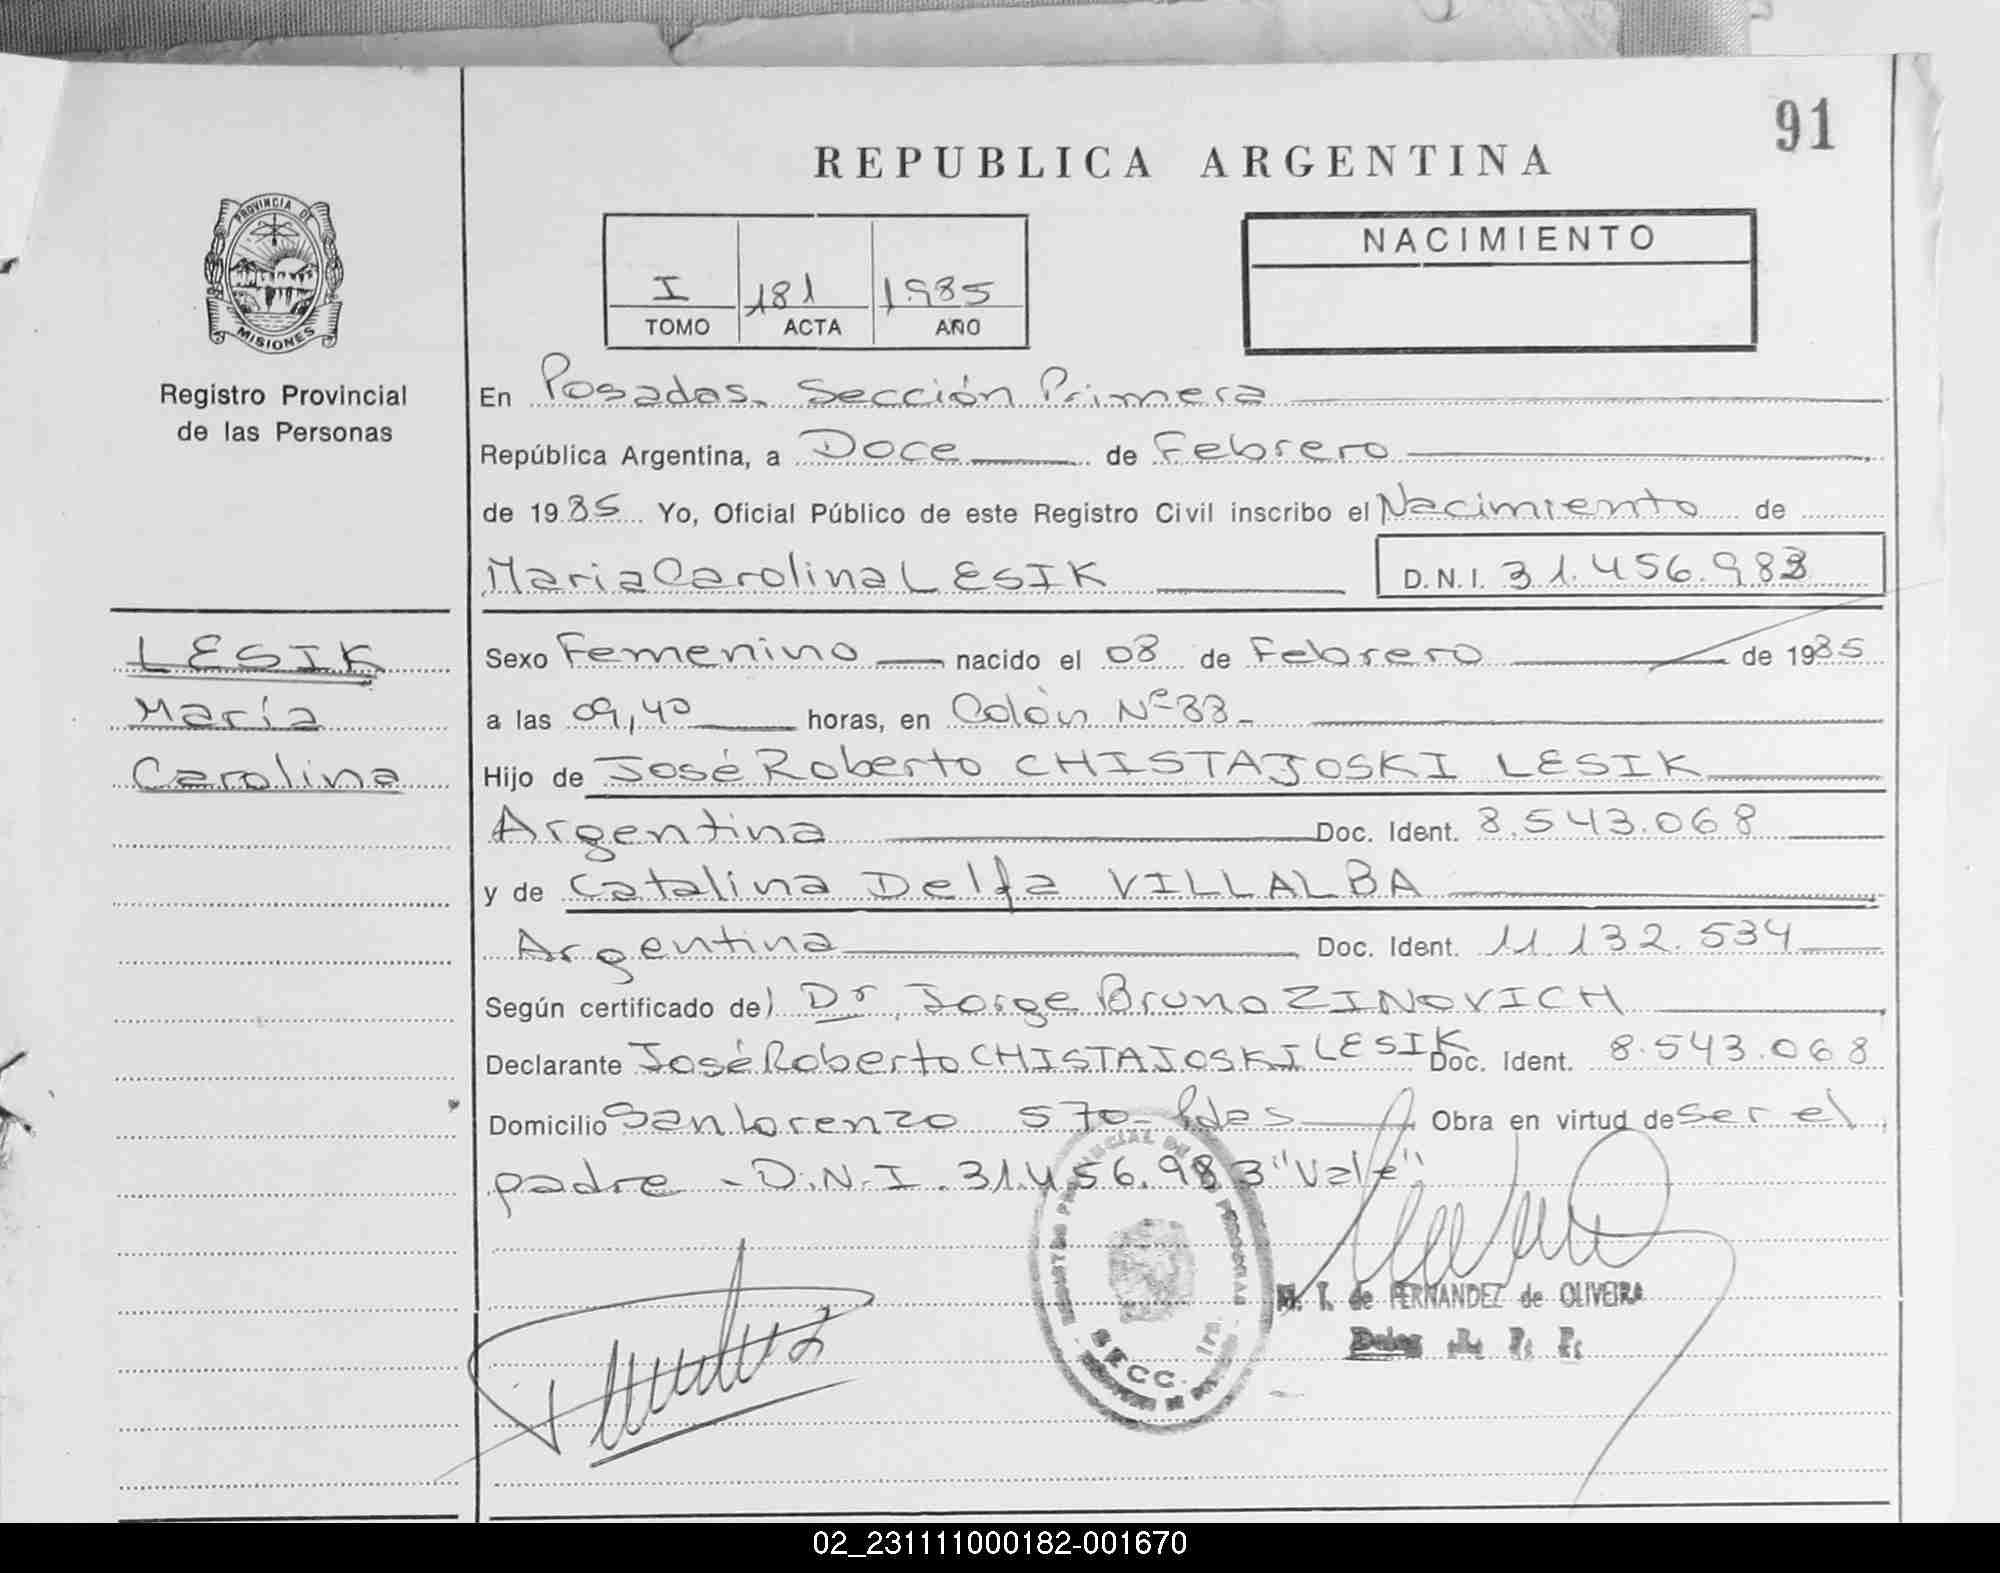 91
REPUBLICA ARGENTINA
PROVINCIA DE
MISIONES
Registro Provincial
de las Personas
I 181 1985
TOMO ACTA AÑO
NACIMIENTO
En Posadas. Sección Primera
República Argentina, a Doce de Febrero
de 1985 Yo, Oficial Público de este Registro Civil inscribo el Nacimiento de
Maria Carolina LESIK D.N.I. 31.456.983
LESIK
María
Carolina
Sexo Femenino nacido el 08 de Febrero de 1985
a las 09,40 horas, en Colón Nº 33-
Hijo de José Roberto CHISTAJOSKI LESIK
Argentina Doc. Ident. 8.543.068
y de Catalina Delfa VILLALBA
Argentina Doc. Ident. 11.132.534
Según certificado del Dr. Jorge Bruno ZINOVICH
Declarante José Roberto CHISTAJOSKI LESIK Doc. Ident. 8.543.068
Domicilio San Lorenzo 570- Pdas Obra en virtud de ser el
padre - D.N.I. 31.456.983 "Vale"
SECC. 1ra.
M. T. de FERNANDEZ de OLIVEIRA
02_231111000182-001670